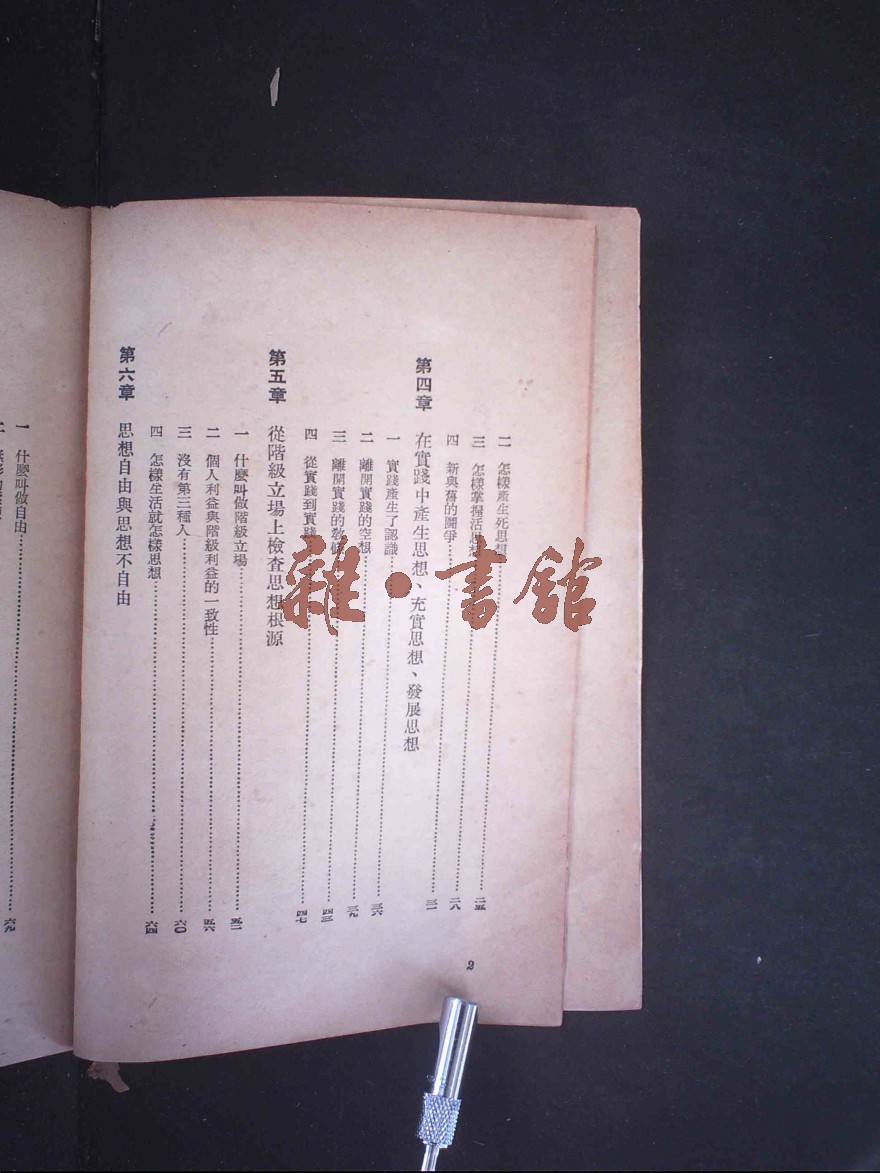 二 怎樣產生死思想……二五
三 怎樣掌握活思想……二八
四 新與舊的鬪爭……三一
第四章 在實踐中產生思想、充實思想、發展思想
一 實踐產生了認識……三六
二 離開實踐的空想……三九
三 離開實踐的教條……四三
四 從實踐到實踐……四七
第五章 從階級立場上檢查思想根源
一 什麼叫做階級立場……五二
二 個人利益與階級利益的一致性……五六
三 沒有第三種人……六〇
四 怎樣生活就怎樣思想……六四
第六章 思想自由與思想不自由
2
一 什麼叫做自由……六九
二
雜·書館